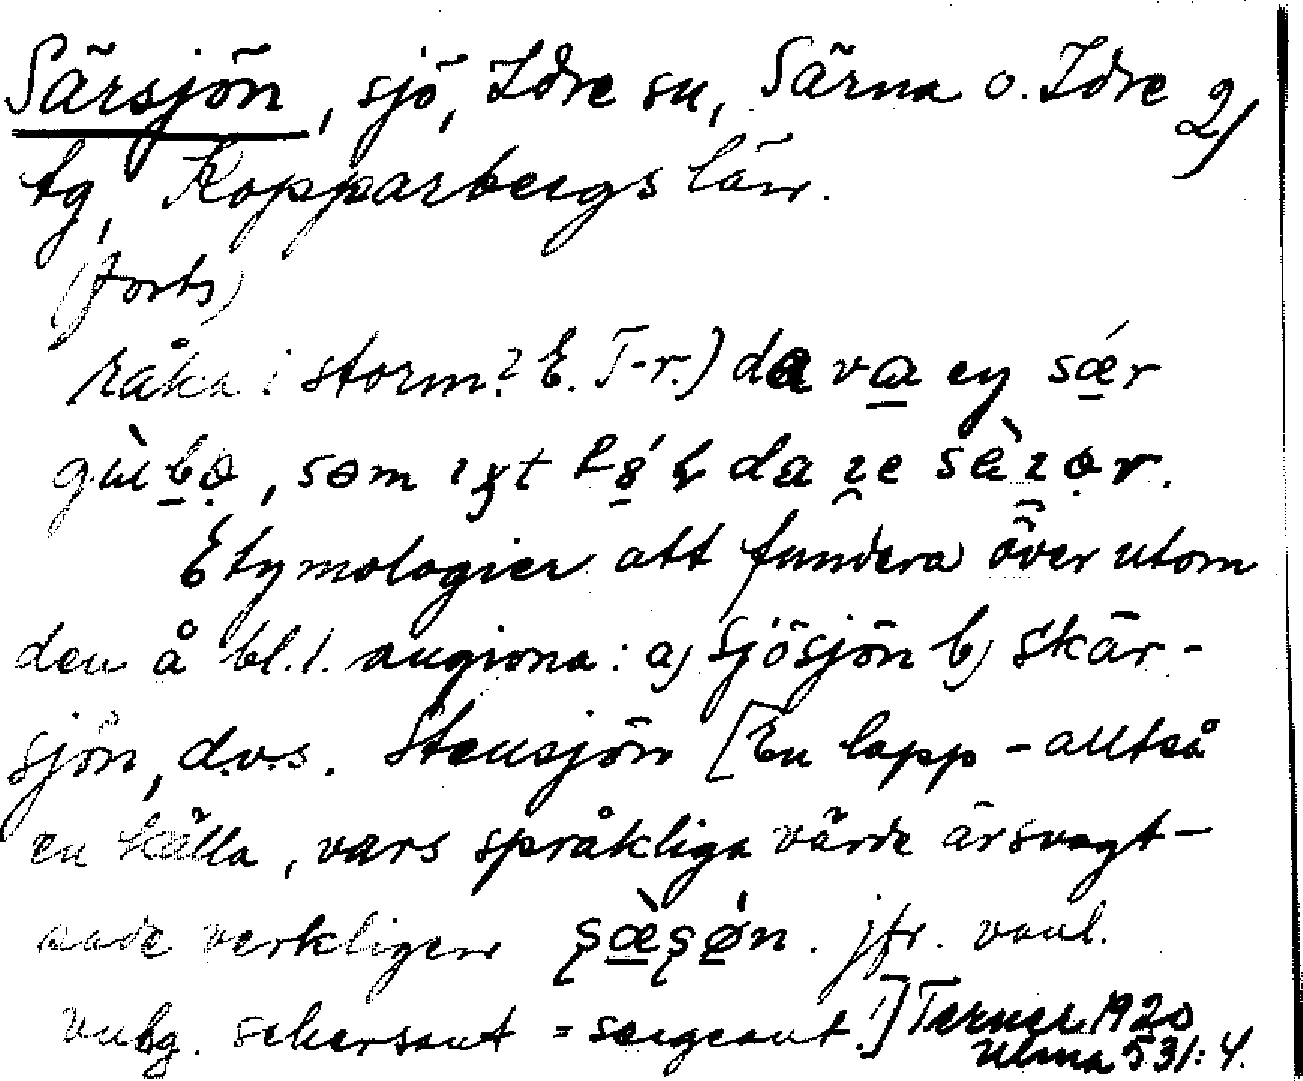 Särsjön, sjö, Idre sn, Särna o. Idre 2/
tg, Kopparbergs län.
(forts)
råka i storm? E. T-r.) da va en sær
gubə, som da
Etymologier att fundera över utom
den å bl. 1. angivna: a) Sjösjön b) Skär-
sjön, d.v.s. Stensjön [En lapp - alltså
en källa, vars språkliga värde är svagt -
sade verkligen ʂæ̀ʂǿn. jfr. vanl.
vnbg. schersant = sergeant!] Terner 1920
Ulma 531:4.